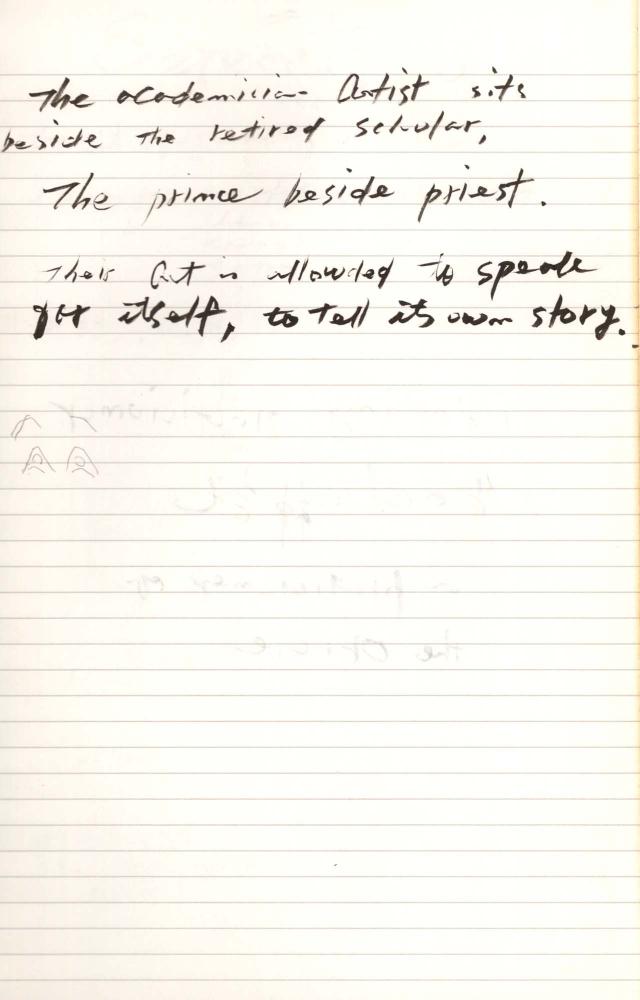 The academician Artist sits
beside the retired scholar,
The prince beside priest.
Their Art is allowded to speak
for itself, to tell its own story.